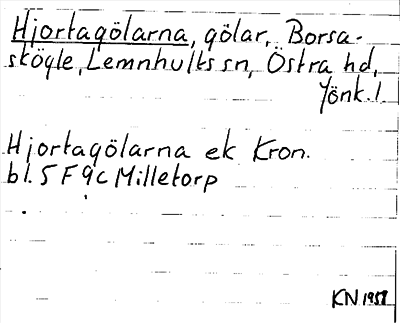 Hjortagölarna, gölar, Borsa-
skögle, Lemnhults sn, Östra hd,
Jönk. l
Hjortagölarna ek Kron.
bl. 5 F 9c Milletorp
KN 1958